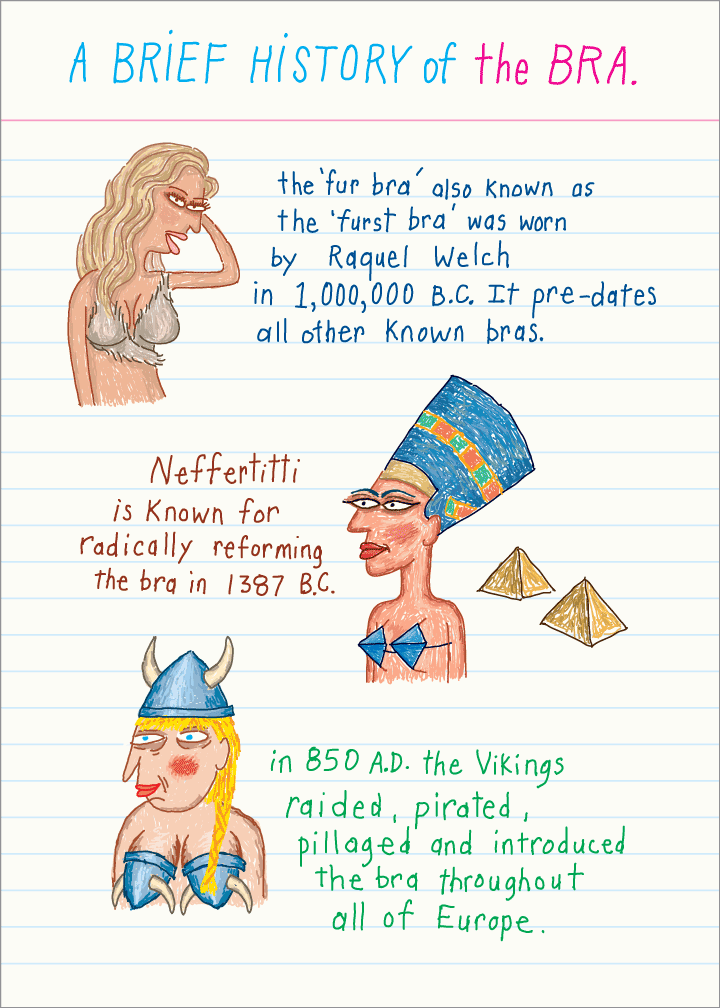 A BRiEF HiSTORY of the BRA.
the 'fur bra' also known as
the 'furst bra' was worn
by Raquel Welch
in 1,000,000 B.C. It pre-dates
all other known bras.
Neffertitti
is known for
radically reforming
the bra in 1387 B.C.
in 850 A.D. the Vikings
raided, pirated,
pillaged and introduced
the bra throughout
all of Europe.